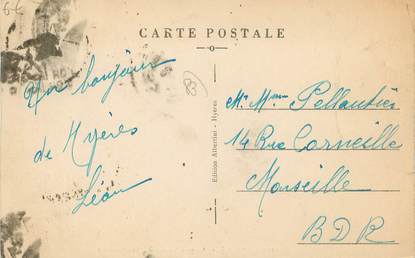 CARTE POSTALE
Un bonjour
de Hyères
Léon
83
Edition Albertini - Hyères
Mr Mme Pellautier
14 Rue Corneille
Marseille
BDR